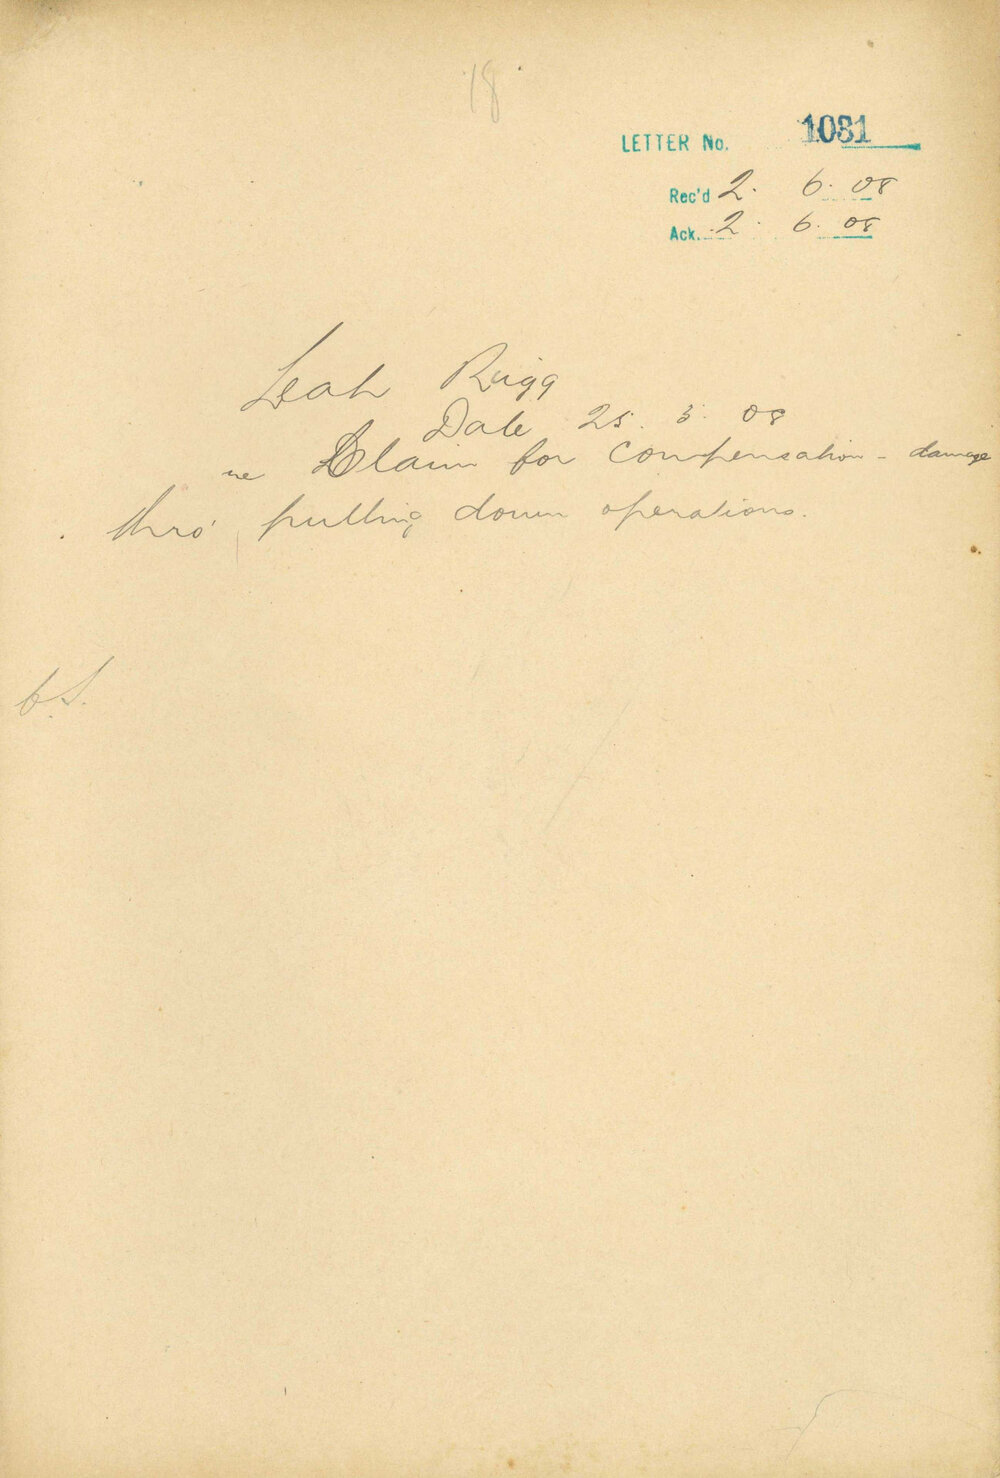 18
LETTER No. 1081
Rec'd 2. 6. 08
Ack. 2. 6. 08
Leah Rigg
Date 25. 5. 08
re Claim for Compensation - damage
thro' pulling down operations.